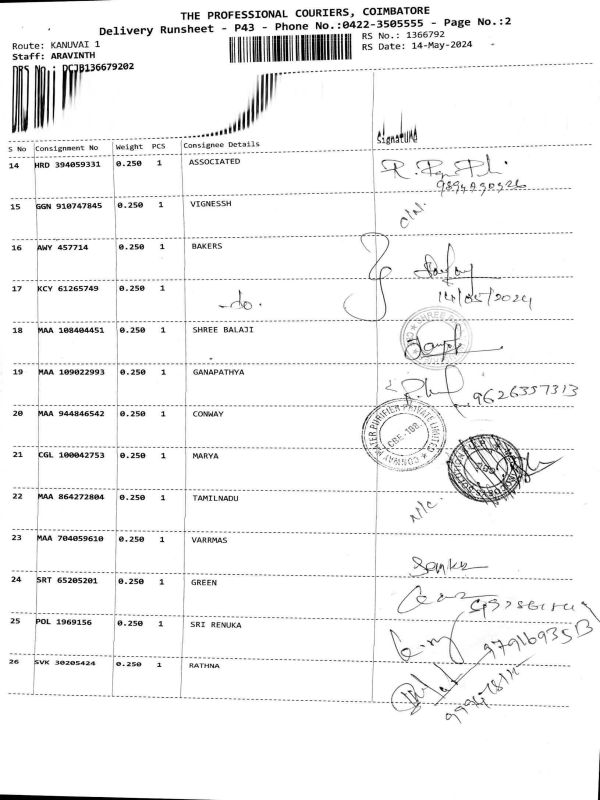 THE PROFESSIONAL COURIERS, COIMBATORE
Delivery Runsheet - P43 - Phone No.:0422-3505555 - Page No.:2
Route: KANUVAI 1
RS No.: 1366792
Staff: ARAVINTH
RS Date: 14-May-2024
DRS No.: DCJB136679202
S No Consignment No Weight PCS Consignee Details Signature
14 HRD 394059331 0.250 1 ASSOCIATED
15 GGN 910747845 0.250 1 VIGNESSH
16 AWY 457714 0.250 1 BAKERS
17 KCY 61265749 0.250 1 -do- 14/05/2024
18 MAA 108404451 0.250 1 SHREE BALAJI
19 MAA 109022993 0.250 1 GANAPATHYA 9626357313
20 MAA 944846542 0.250 1 CONWAY
CONWAY WATER PURIFIER PRIVATE LIMITED
CBE-108
21 CGL 100042753 0.250 1 MARYA
22 MAA 864272804 0.250 1 TAMILNADU N/C.
23 MAA 704059610 0.250 1 VARRMAS
24 SRT 65205201 0.250 1 GREEN
25 POL 1969156 0.250 1 SRI RENUKA
26 SVK 30205424 0.250 1 RATHNA